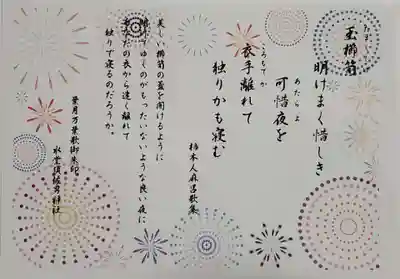 たまくしげ
玉櫛笥
明けまく惜しき
あたらよ
可惜夜を
ころもでか
衣手離れて
独りかも寝む
柿本人麻呂歌集
美しい櫛笥の蓋を開けるように
明けてゆくのがもったいないような良い夜に
あなたの衣から遠く離れて
独りで寝るのだろうか
葉月万葉歌御朱印
水堂須佐男神社